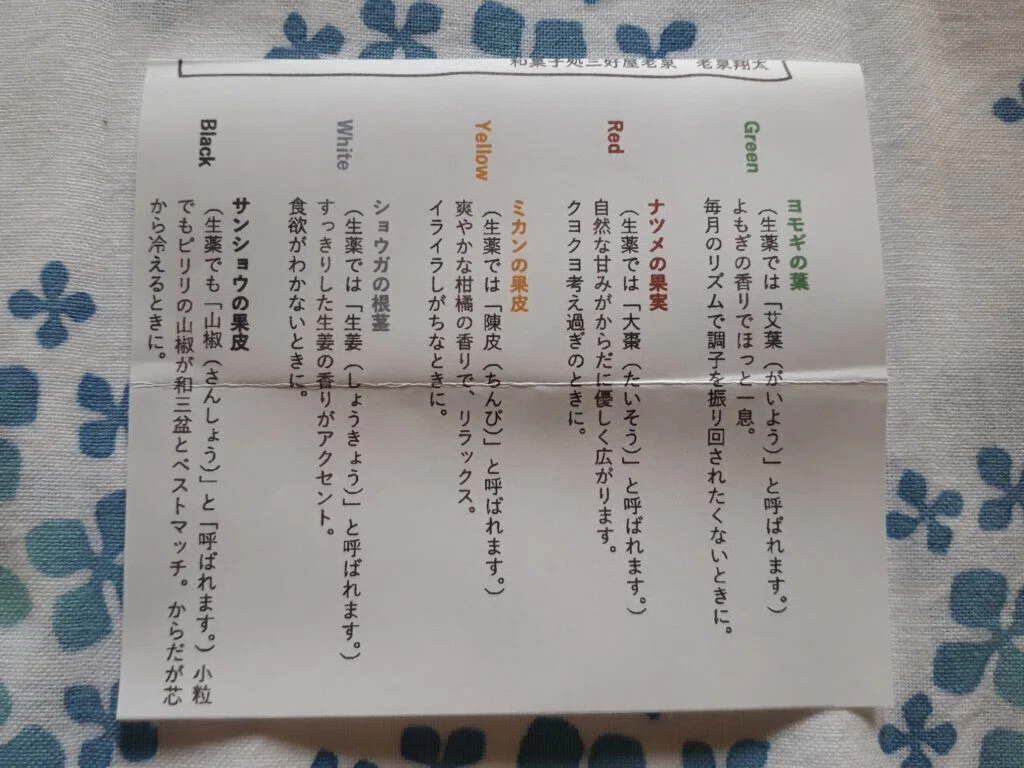 和菓子処三好屋老泉　老泉翔太
Green
ヨモギの葉
（生薬では「艾葉（がいよう）」と呼ばれます。）
よもぎの香りでほっと一息。
毎月のリズムで調子を振り回されたくないときに。
Red
ナツメの果実
（生薬では「大棗（たいそう）」と呼ばれます。）
自然な甘みがからだに優しく広がります。
クヨクヨ考え過ぎのときに。
Yellow
ミカンの果皮
（生薬では「陳皮（ちんぴ）」と呼ばれます。）
爽やかな柑橘の香りで、リラックス。
イライラしがちなときに。
White
ショウガの根茎
（生薬では「生姜（しょうきょう）」と呼ばれます。）
すっきりした生姜の香りがアクセント。
食欲がわかないときに。
Black
サンショウの果皮
（生薬でも「山椒（さんしょう）」と「呼ばれます。）小粒
でもピリリの山椒が和三盆とベストマッチ。からだが芯
から冷えるときに。